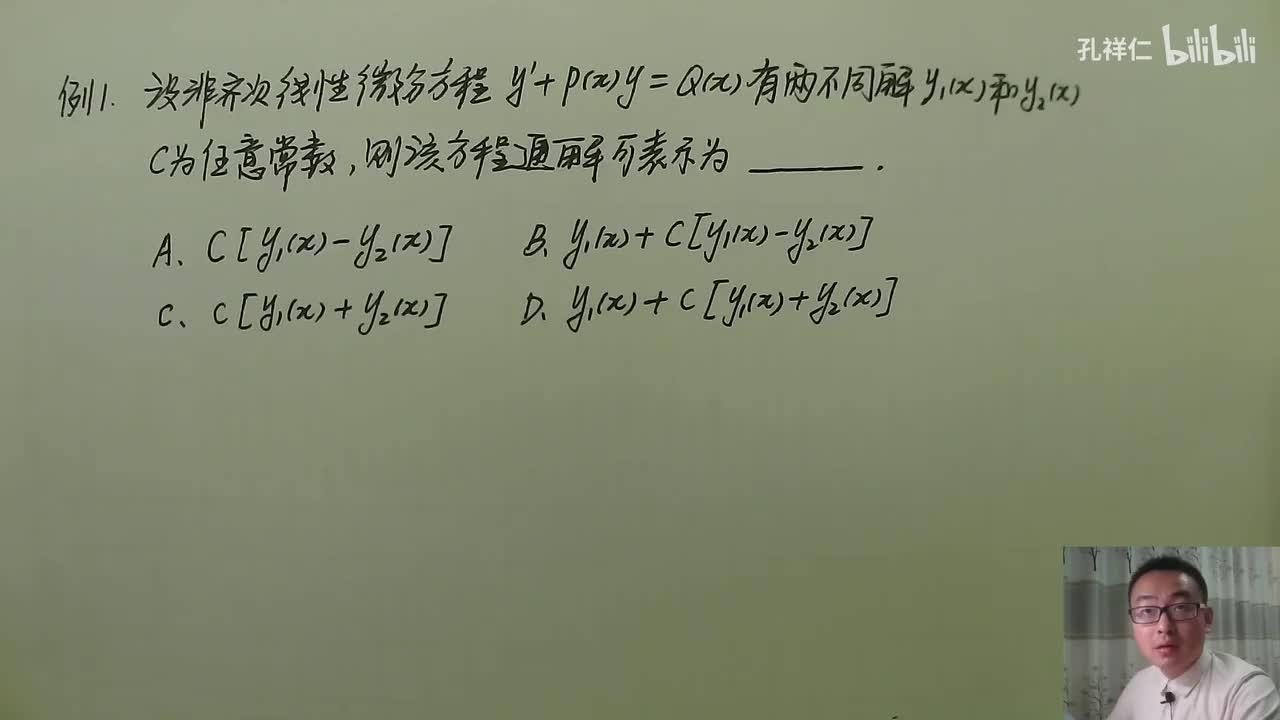 孔祥仁 bilibili
例1. 设非齐次线性微分方程 y'+P(x)y=Q(x)有两不同解 y₁(x)和y₂(x)
C为任意常数,则该方程通解可表示为 ______.
A、C[y₁(x)-y₂(x)] B、y₁(x)+C[y₁(x)-y₂(x)]
C、C[y₁(x)+y₂(x)] D、y₁(x)+C[y₁(x)+y₂(x)]